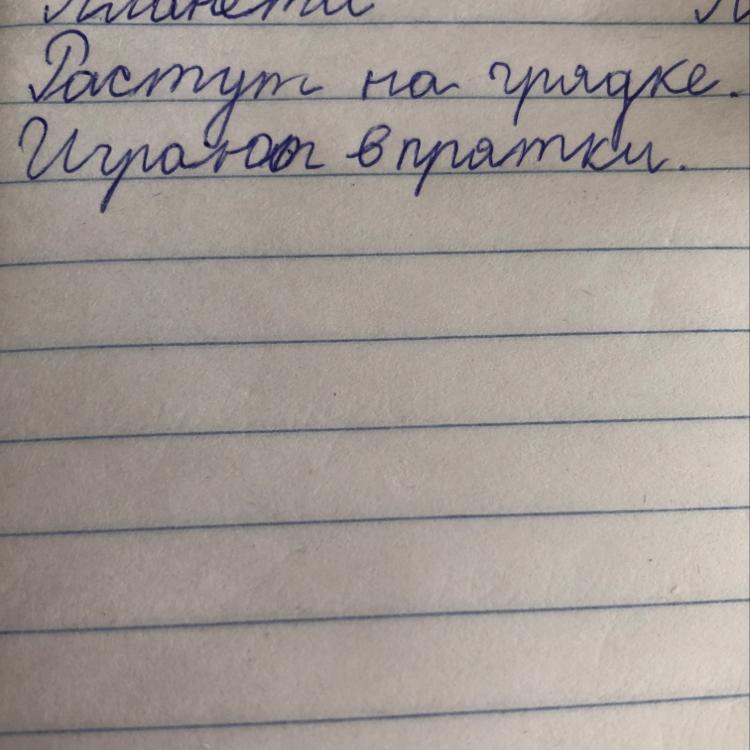 Растут на грядке.
Играют в прятки.